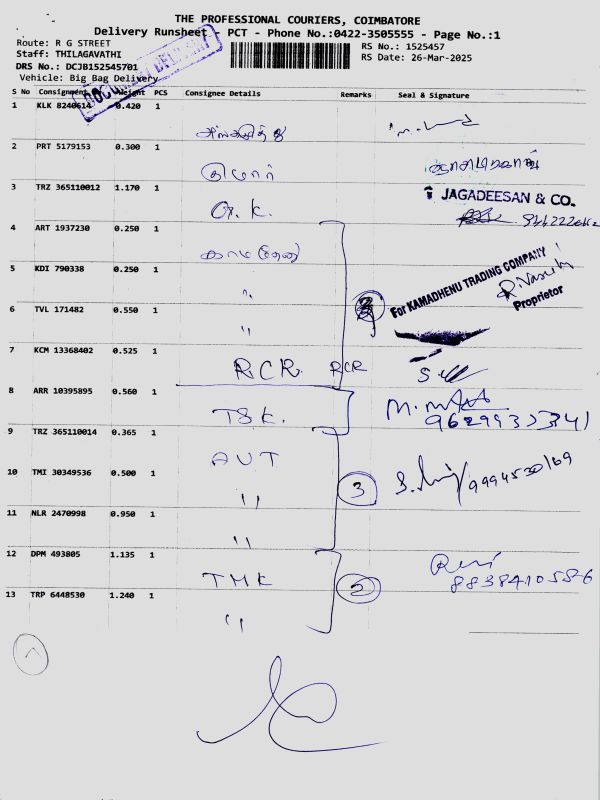 THE PROFESSIONAL COURIERS, COIMBATORE
Delivery Runsheet - PCT - Phone No.:0422-3505555 - Page No.:1
Route: R G STREET
RS No.: 1525457
Staff: THILAGAVATHI
RS Date: 26-Mar-2025
DRS No.: DCJB152545701
Vehicle: Big Bag Delivery
DOCUMENT DELIVERY
S No Consignment Weight PCS Consignee Details Remarks Seal & Signature
1 KLK 8240614 0.420 1
2 PRT 5179153 0.300 1
3 TRZ 365110012 1.170 1 G. K. JAGADEESAN & CO.
4 ART 1937230 0.250 1 காமதேனு
5 KDI 790338 0.250 1 "
For KAMADHENU TRADING COMPANY
Proprietor
6 TVL 171482 0.550 1 "
7 KCM 13368402 0.525 1 RCR RCR
8 ARR 10395895 0.560 1 TSK.
9 TRZ 365110014 0.365 1 AUT
10 TMI 30349536 0.500 1 " 3
11 NLR 2470998 0.950 1 "
12 DPM 493805 1.135 1 TMK 2
8838410586
13 TRP 6448530 1.240 1 "